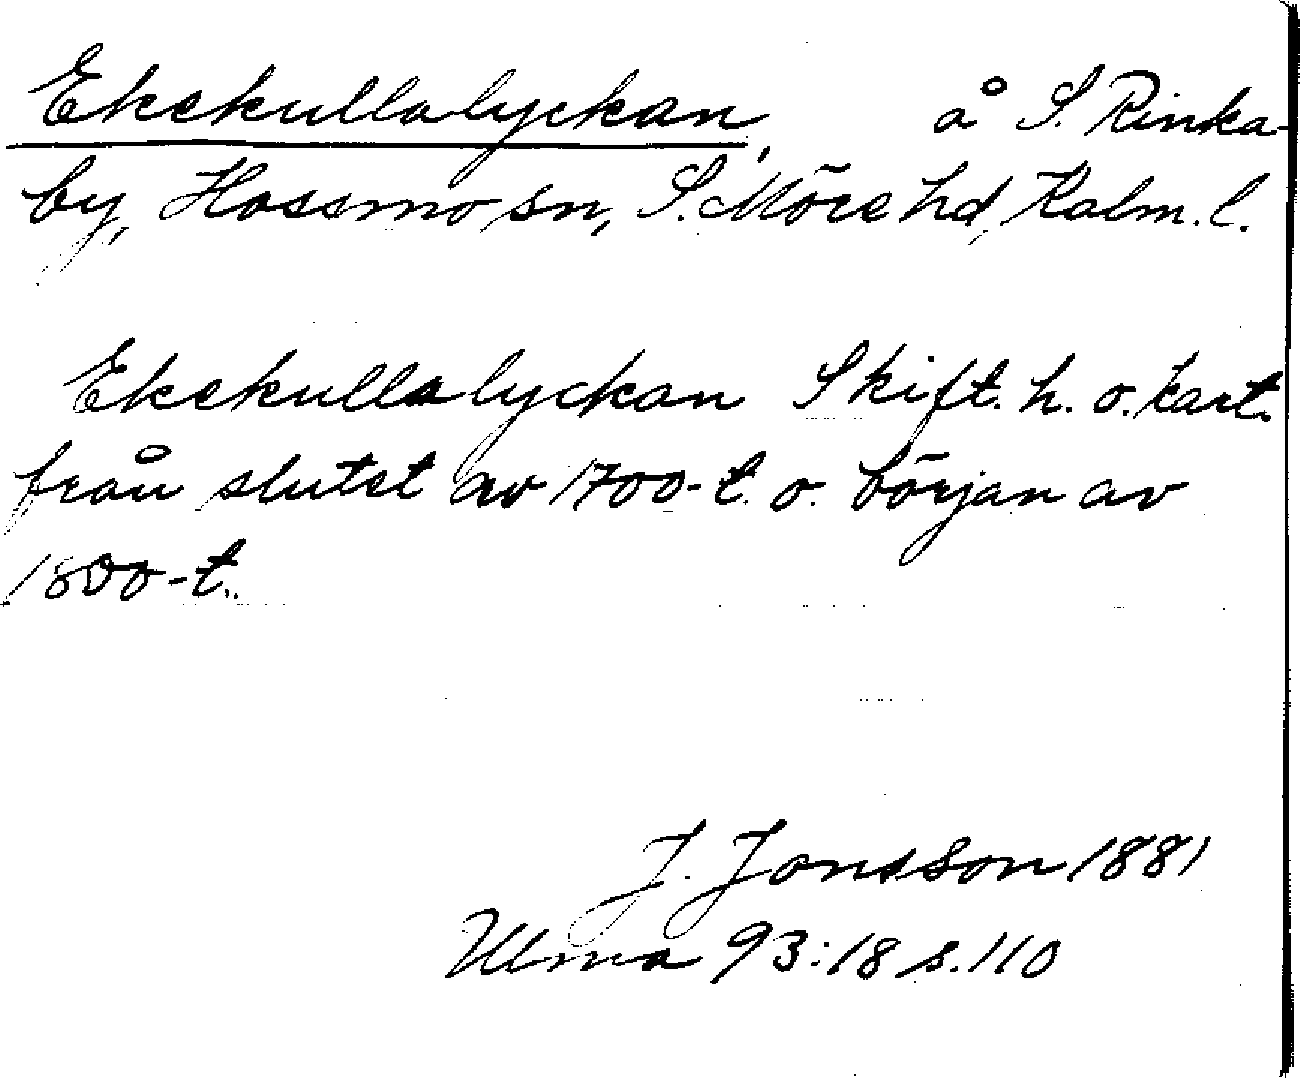 Ekekullalyckan, å S. Rinka-
by, Hossmo sn, S. Möre hd, Kalm. l.
Ekekullalyckan Skift. h. o. kart.
från slutet av 1700-t. o. början av
1800-t.
J. Jonsson 1881
Ulma 93:18 s. 110